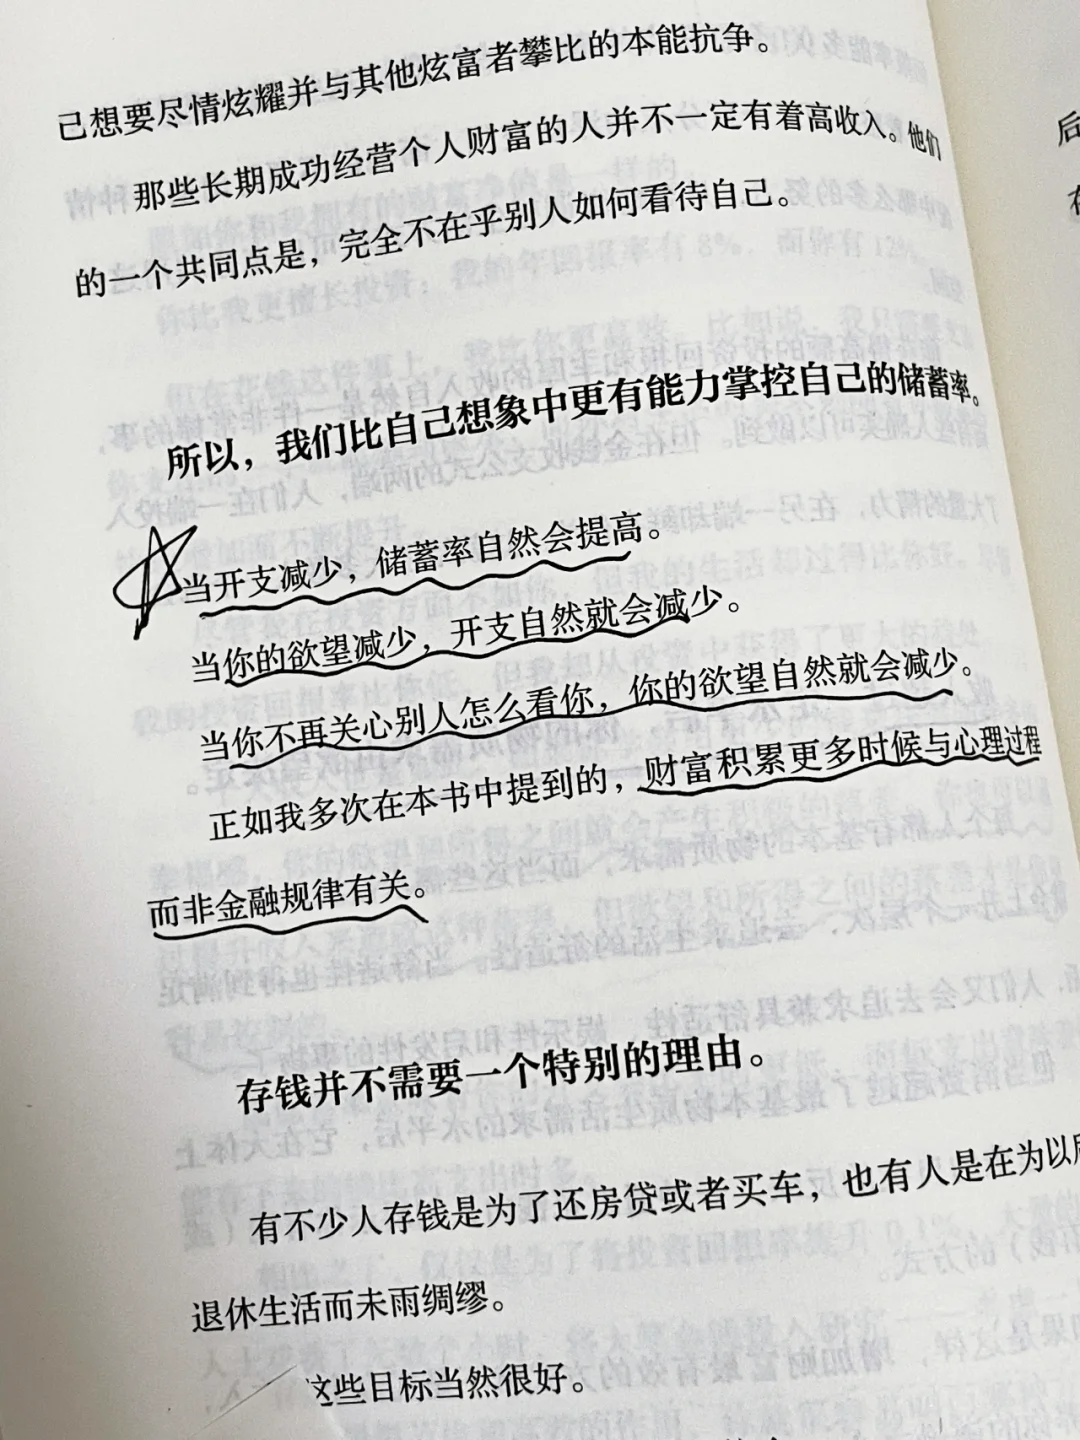 己想要尽情炫耀并与其他炫富者攀比的本能抗争。
那些长期成功经营个人财富的人并不一定有着高收入。他们
的一个共同点是，完全不在乎别人如何看待自己。
所以，我们比自己想象中更有能力掌控自己的储蓄率。
当开支减少，储蓄率自然会提高。
当你的欲望减少，开支自然就会减少。
当你不再关心别人怎么看你，你的欲望自然就会减少。
正如我多次在本书中提到的，财富积累更多时候与心理过程
而非金融规律有关。
存钱并不需要一个特别的理由。
有不少人存钱是为了还房贷或者买车，也有人是在为以后
退休生活而未雨绸缪。
这些目标当然很好。
后
在